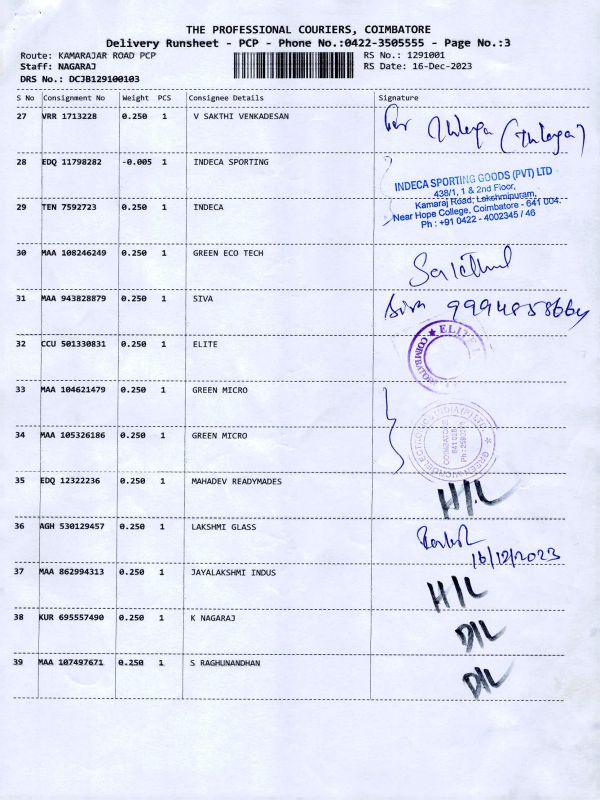 THE PROFESSIONAL COURIERS, COIMBATORE
Delivery Runsheet - PCP - Phone No.:0422-3505555 - Page No.:3
Route: KAMARAJAR ROAD PCP RS No.: 1291001
Staff: NAGARAJ RS Date: 16-Dec-2023
DRS No.: DCJB129100103
S No Consignment No Weight PCS Consignee Details Signature
27 VRR 1713228 0.250 1 V SAKTHI VENKADESAN
28 EDQ 11798282 -0.005 1 INDECA SPORTING
INDECA SPORTING GOODS (PVT) LTD
438/1, 1 & 2nd Floor,
Kamaraj Road, Lakshmipuram,
Near Hope College, Coimbatore - 641 004.
Ph : +91 0422 - 4002345 / 46
29 TEN 7592723 0.250 1 INDECA
30 MAA 108246249 0.250 1 GREEN ECO TECH
31 MAA 943828879 0.250 1 SIVA Siva 9994858664
32 CCU 501330831 0.250 1 ELITE ELITE COIMBATORE
33 MAA 104621479 0.250 1 GREEN MICRO
34 MAA 105326186 0.250 1 GREEN MICRO
35 EDQ 12322236 0.250 1 MAHADEV READYMADES H/L
36 AGH 530129457 0.250 1 LAKSHMI GLASS 16/12/2023
37 MAA 862994313 0.250 1 JAYALAKSHMI INDUS H/L
38 KUR 695557490 0.250 1 K NAGARAJ D/L
39 MAA 107497671 0.250 1 S RAGHUNANDHAN D/L